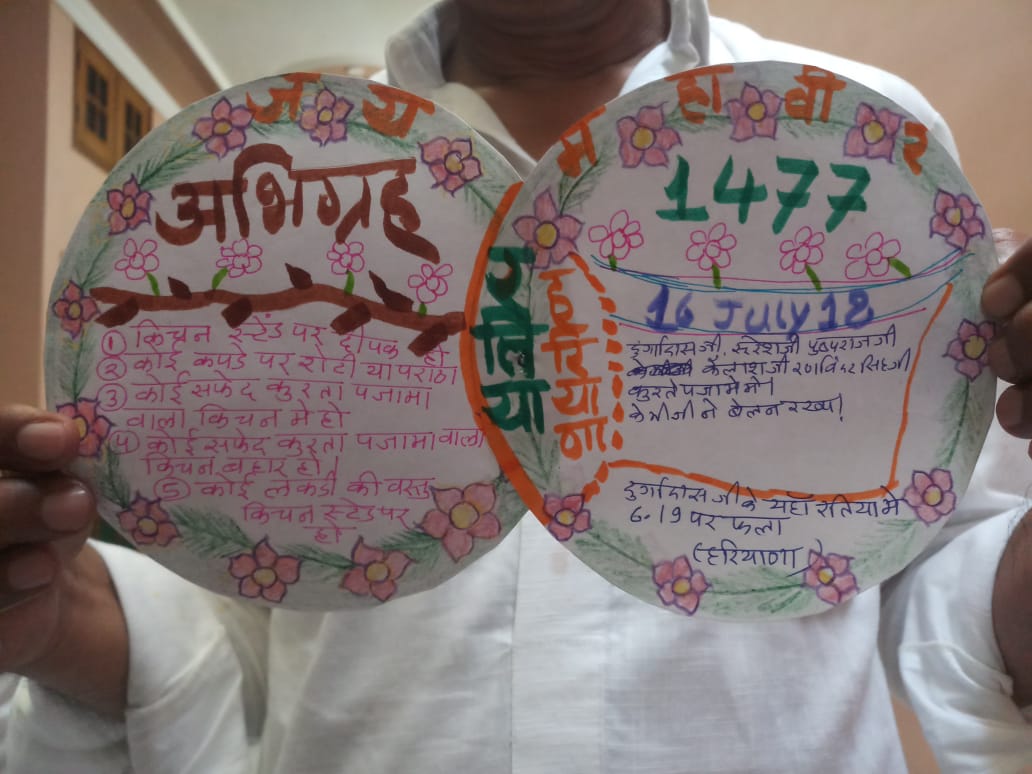 जय महावीर
अभिग्रह
① किचन स्टेंड पर दीपक हो
② कोई कपडे पर रोटी या पराठा
③ कोई सफेद कुरता पजामा
वाला किचन मे हो
④ कोई सफेद कुरता पजामा वाला
किचन बहार हो।
⑤ कोई लकडी की वस्तु
किचन स्टेडपर
हो
रतिया
हरियाणा
1477
16 July 18
दुर्गादासजी, सुरेशजी पुष्पराजजी
कैलाशजी रणविदर सिंहजी
कुरते पजामे मे।
ने बेलन रखा!
दुर्गादास जी के यहाँ रतिया मे
6.19 पर फला
(हरियाणा)